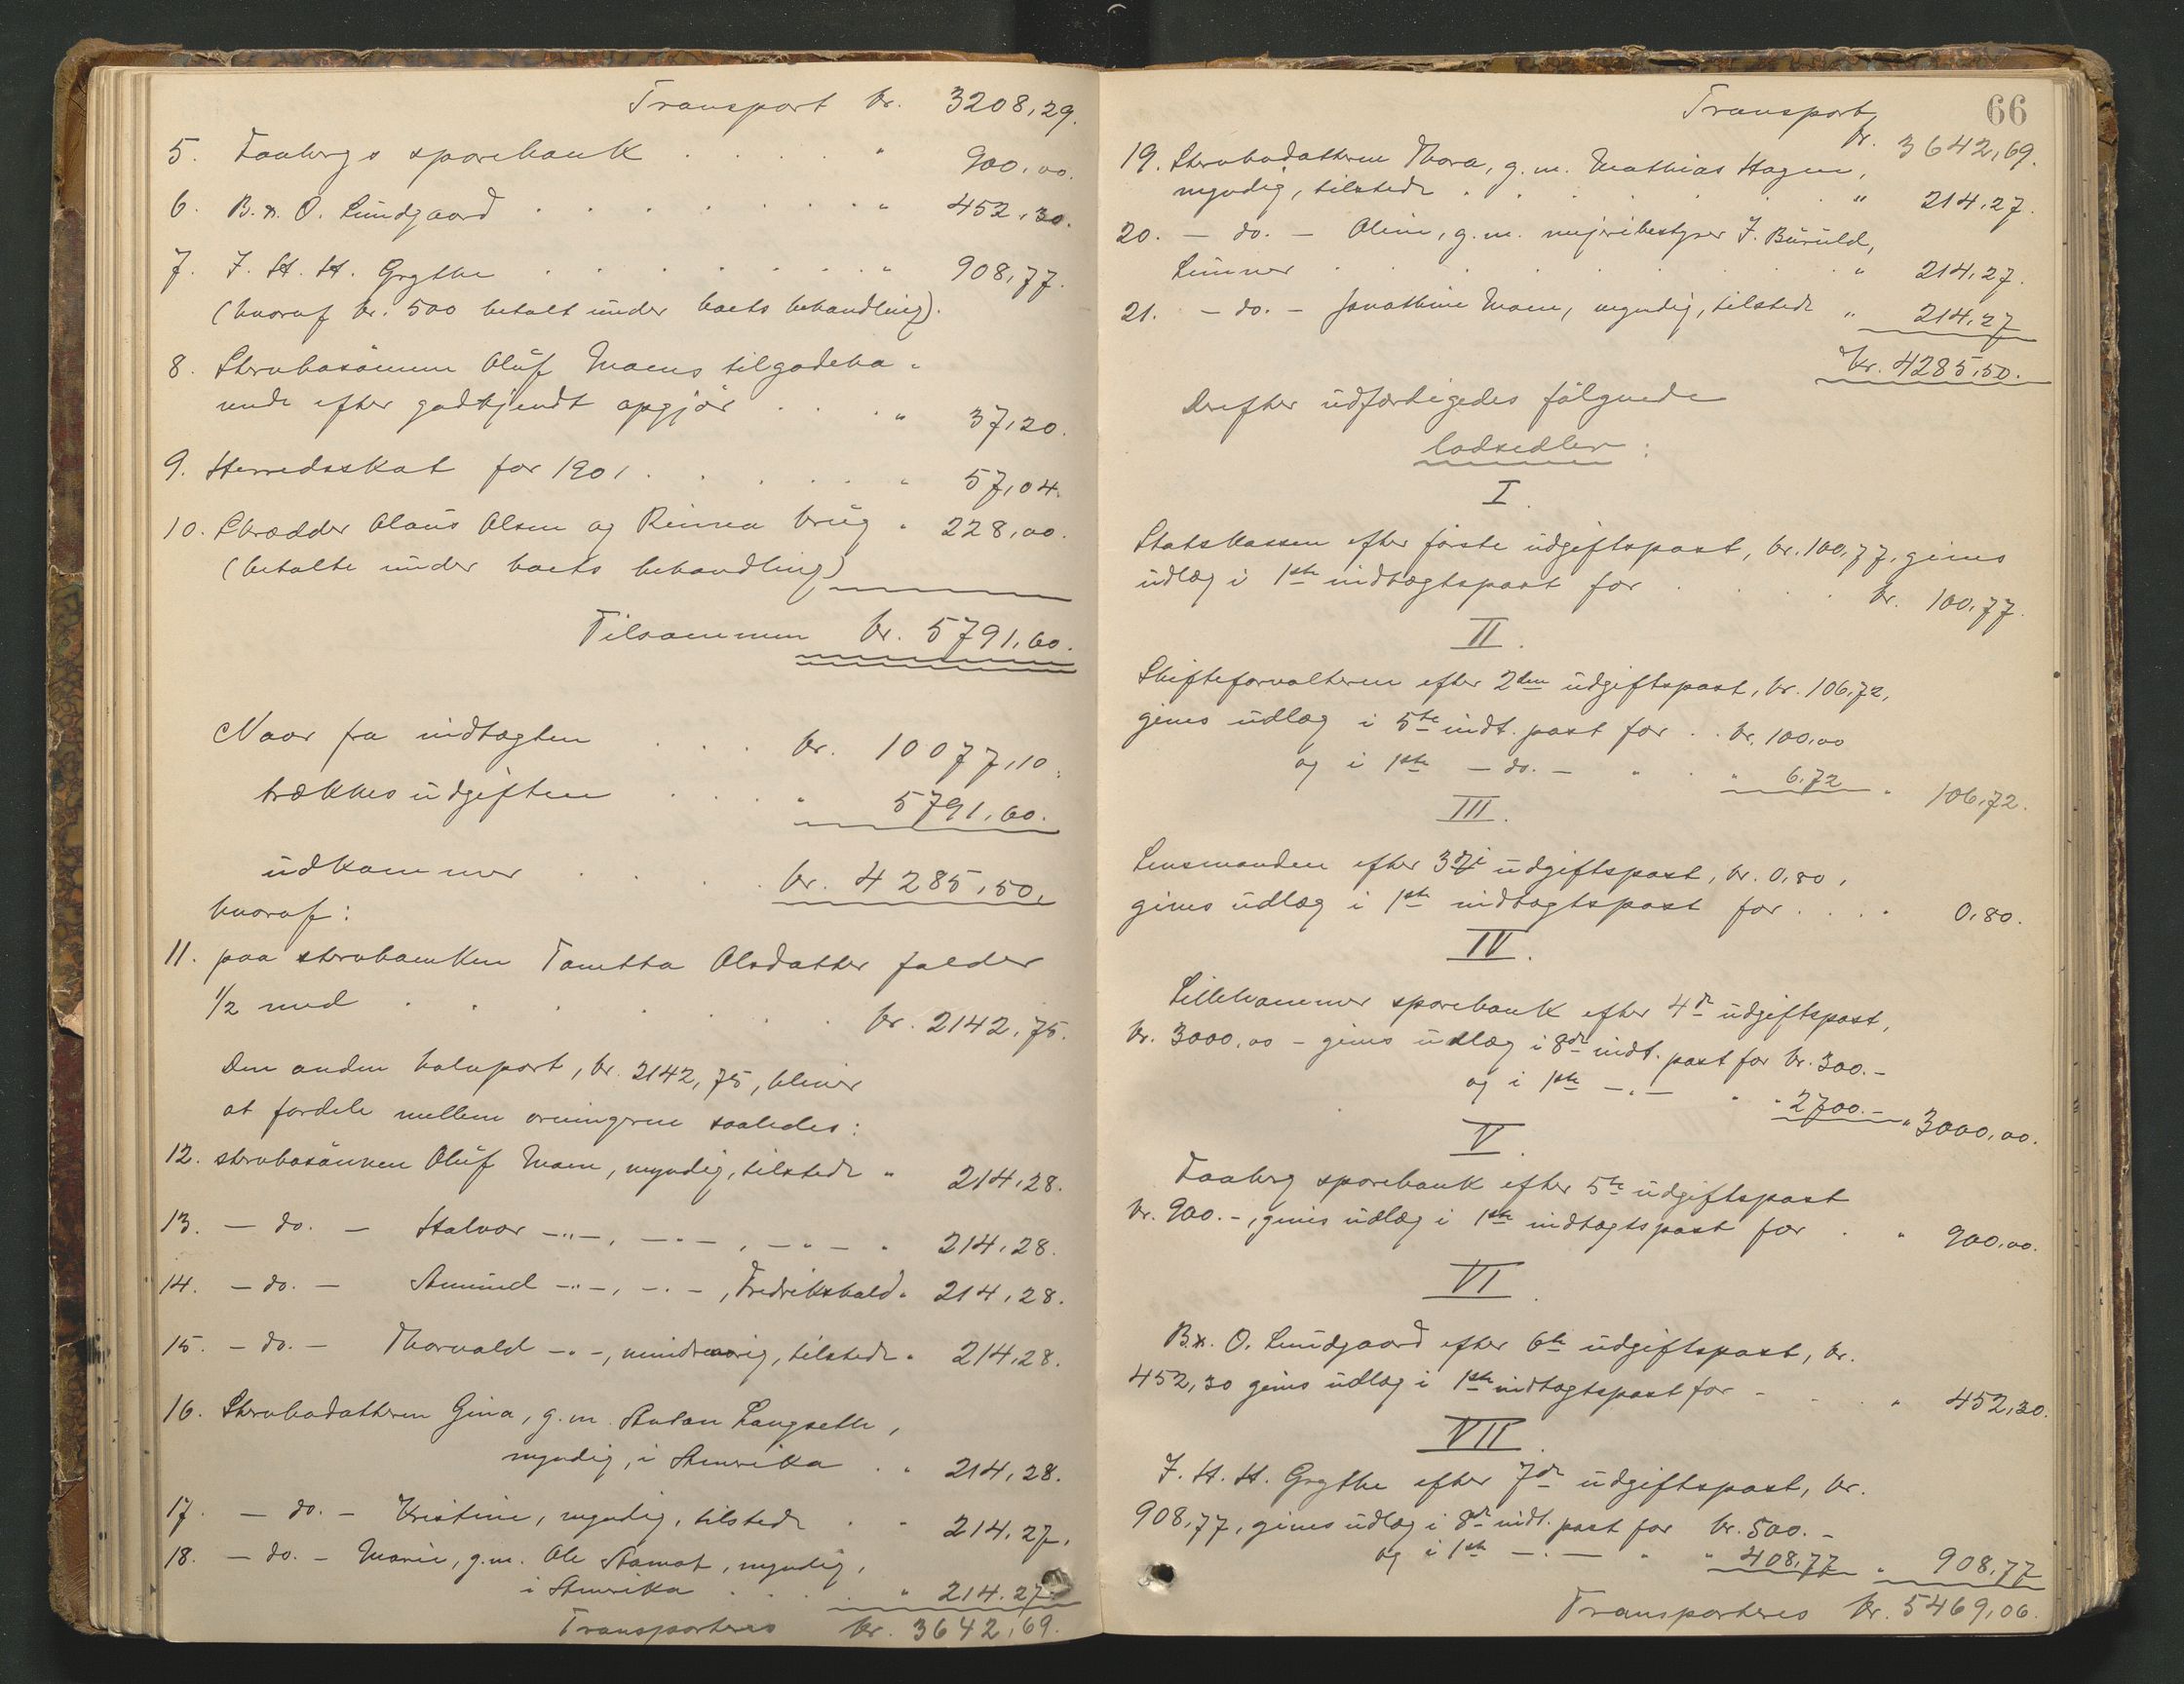 Transport kr. 3208,29.
5. Faabergs sparebank . . . . " 900,00.
6. B. N. O. Lundgaard . . . . . . . " 452,30.
7. J. H. H. Grythe . . . . . . . " 908,77.
(hvoraf kr. 500 betalt under boets behandling).
8. Stervbosønnen Oluf Moens tilgodeha-
vende efter godkjendt opgjør . . . " 37,20.
9. Herredsskat for 1901 . . . . . " 57,04.
10. Skrædder Olaus Olsen og Rinna brug " 228,00.
(betalte under boets behandling)
Tilsammen kr. 5791,60.
Naar fra indtægten . . . kr. 10077,10.
trækkes udgiften . . . " 5791,60.
udkommer . . . . kr. 4285,50.
hvoraf:
11. paa stervboenken Tonetta Olsdatter falder
1/2 med . . . . . . . kr. 2142,75.
Den anden halvpart, kr. 2142,75, bliver
at fordele mellem arvingerne saaledes:
12. stervbosønnen Oluf Moen, myndig, tilstede " 214,28.
13. – do. – Halvor – " –, – " –, – " – " 214,28.
14. – do. – Amund – " –, – " –, Fredrikshald " 214,28.
15. – do. – Thorvald – " –, mindreaarig, tilstede " 214,28.
16. Stervbodatteren Gina, g. m. Anton Langseth,
myndig, i Amerika . " 214,28.
17. – do. – Kristine, myndig, tilstede . . 214,27.
18. – do. – Marie, g. m. Ole Aamot, myndig,
i Amerika . . . . " 214,27.
Transporteres kr. 3642,69.
66
Transport
kr. 3642,69.
19. Stervbodatteren Thora, g. m. Mathias Hagen,
myndig, tilstede . . . . . . " 214,27.
20. – do. – Oline, g. m. meieribestyrer J. Buruld,
Lunner . . . . . . . . " 214,27.
21. – do. – Jonathine Moen, myndig, tilstede " 214,27
Kr. 4285,50.
Derefter udfærdigedes følgende
lodsedler:
I.
Statskassen efter første udgiftspost, kr. 100,77, gives
udlæg i 1ste indtægtspost for . . . . kr. 100,77.
II.
Skifteforvalteren efter 2den udgiftspost, kr. 106,72,
gives udlæg i 5te indt. post for . . kr. 100,00
og i 1ste – do. – " . " 6,72 " 106,72.
III.
Lensmanden efter 3die udgiftspost, kr. 0,80,
gives udlæg i 1ste indtægtspost for . . . . 0,80.
IV.
Lillehammer sparebank efter 4de udgiftspost,
kr. 3000,00 – gives udlæg i 8de indt. post for kr. 300.–
og i 1ste – " – " " 2700.– " 3000,00.
V.
Faaberg sparebank efter 5te udgiftspost
kr. 900.–, gives udlæg i 1ste indtægtspost for . " 900,00.
VI.
B. N. O. Lundgaard efter 6te udgiftspost, kr.
452,30 gives udlæg i 1ste indtægtspost for – . . " 452,30.
VII.
J. H. H. Grythe efter 7de udgiftspost, kr.
908,77, gives udlæg i 8de indt. post for kr. 500.–
og i 1ste – . – " " 408,77 " 908,77
Transporteres kr. 5469,06.